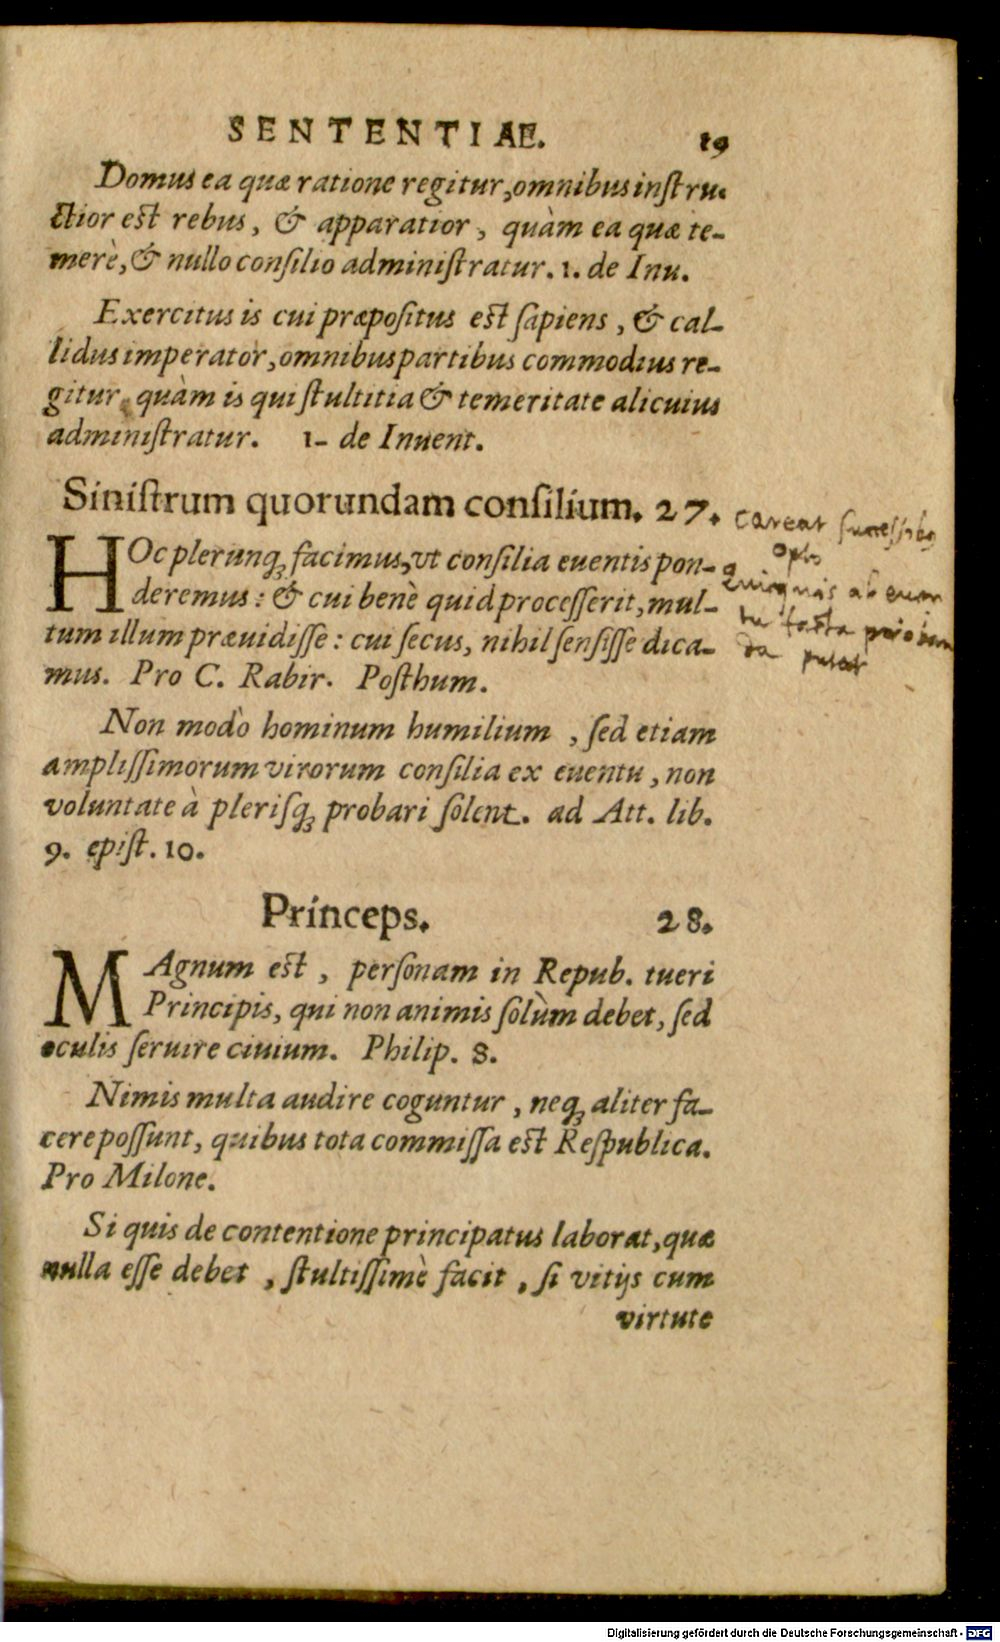 SENTENTIAE. 19
Domus ea quæ ratione regitur, omnibus inſtru-
ctior eſt rebus, & apparatior, quàm ea quæ te-
merè, & nullo conſilio adminiſtratur. 1. de Inu.
Exercitus is cui præpoſitus eſt ſapiens, & cal-
lidus imperator, omnibus partibus commodius re-
gitur, quàm is qui ſtultitia & temeritate alicuius
adminiſtratur. 1- de Inuent.
Siniſtrum quorundam conſilium. 27.
HOc plerunqꝫ facimus, vt conſilia euentis pon-
deremus: & cui benè quid proceſſerit, mul-
tum illum præuidiſſe: cui ſecus, nihil ſenſiſſe dica-
mus. Pro C. Rabir. Poſthum.
careat ſucceſſibus
opto
quisquis ab euen
tu facta
da putat
Non modò hominum humilium, ſed etiam
ampliſſimorum virorum conſilia ex euentu, non
voluntate à pleriſqꝫ probari ſolent. ad Att. lib.
9. epiſt. 10.
Princeps. 28.
MAgnum eſt, perſonam in Repub. tueri
Principis, qui non animis ſolùm debet, ſed
oculis ſeruire ciuium. Philip. 8.
Nimis multa audire coguntur, neqꝫ aliter fa-
cere poſſunt, quibus tota commiſſa eſt Reſpublica.
Pro Milone.
Si quis de contentione principatus laborat, quæ
nulla eſſe debet, ſtultiſſimè facit, ſi vitijs cum
virtute
Digitalisierung gefördert durch die Deutsche Forschungsgemeinschaft - DFG